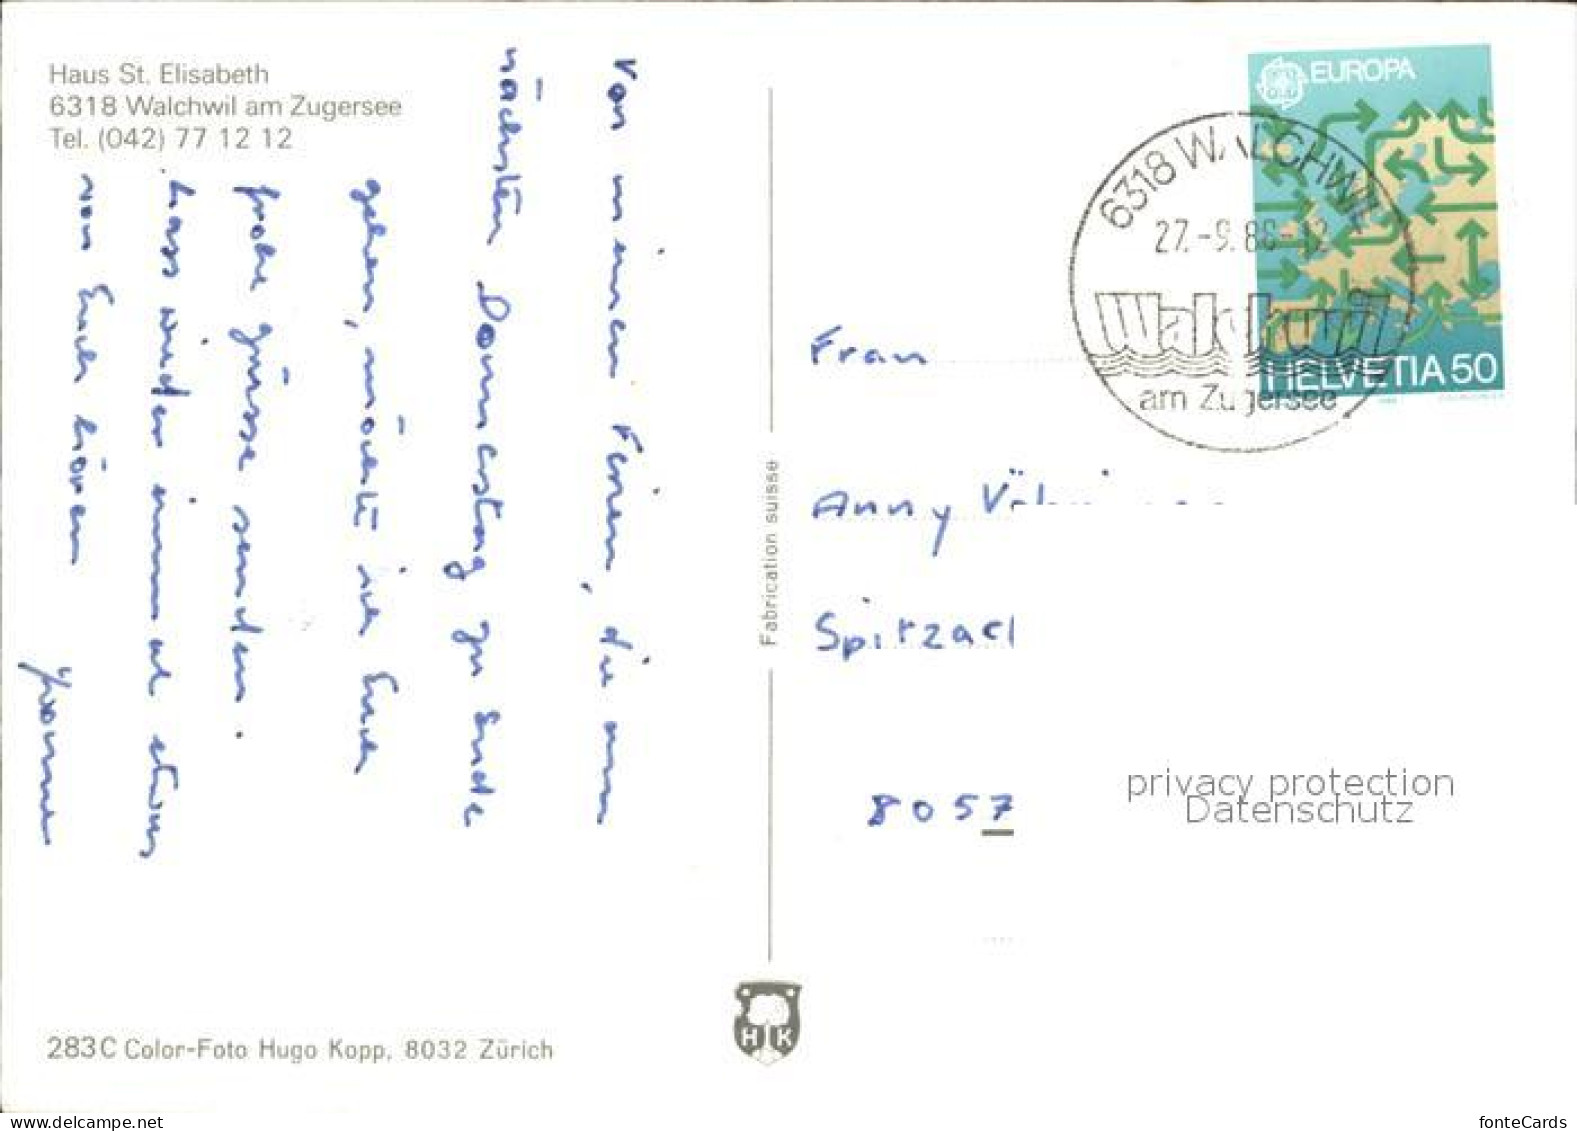 Haus St. Elisabeth
6318 Walchwil am Zugersee
Tel. (042) 77 12 12
Von meinen Ferien, die am
nächsten Donnerstag zu Ende
gehen, möchte ich Euch
frohe Grüsse senden.
Lass wieder einmal etwas
von Euch hören
Yvonne
Fabrication suisse
283C Color-Foto Hugo Kopp, 8032 Zürich
H K
EUROPA
HELVETIA 50
6318 WALCHWIL
27.-9.88-12
Walchwil
am Zugersee
Frau
Anny
Spitzac
8057
privacy protection
Datenschutz
www.delcampe.net
fonteCards